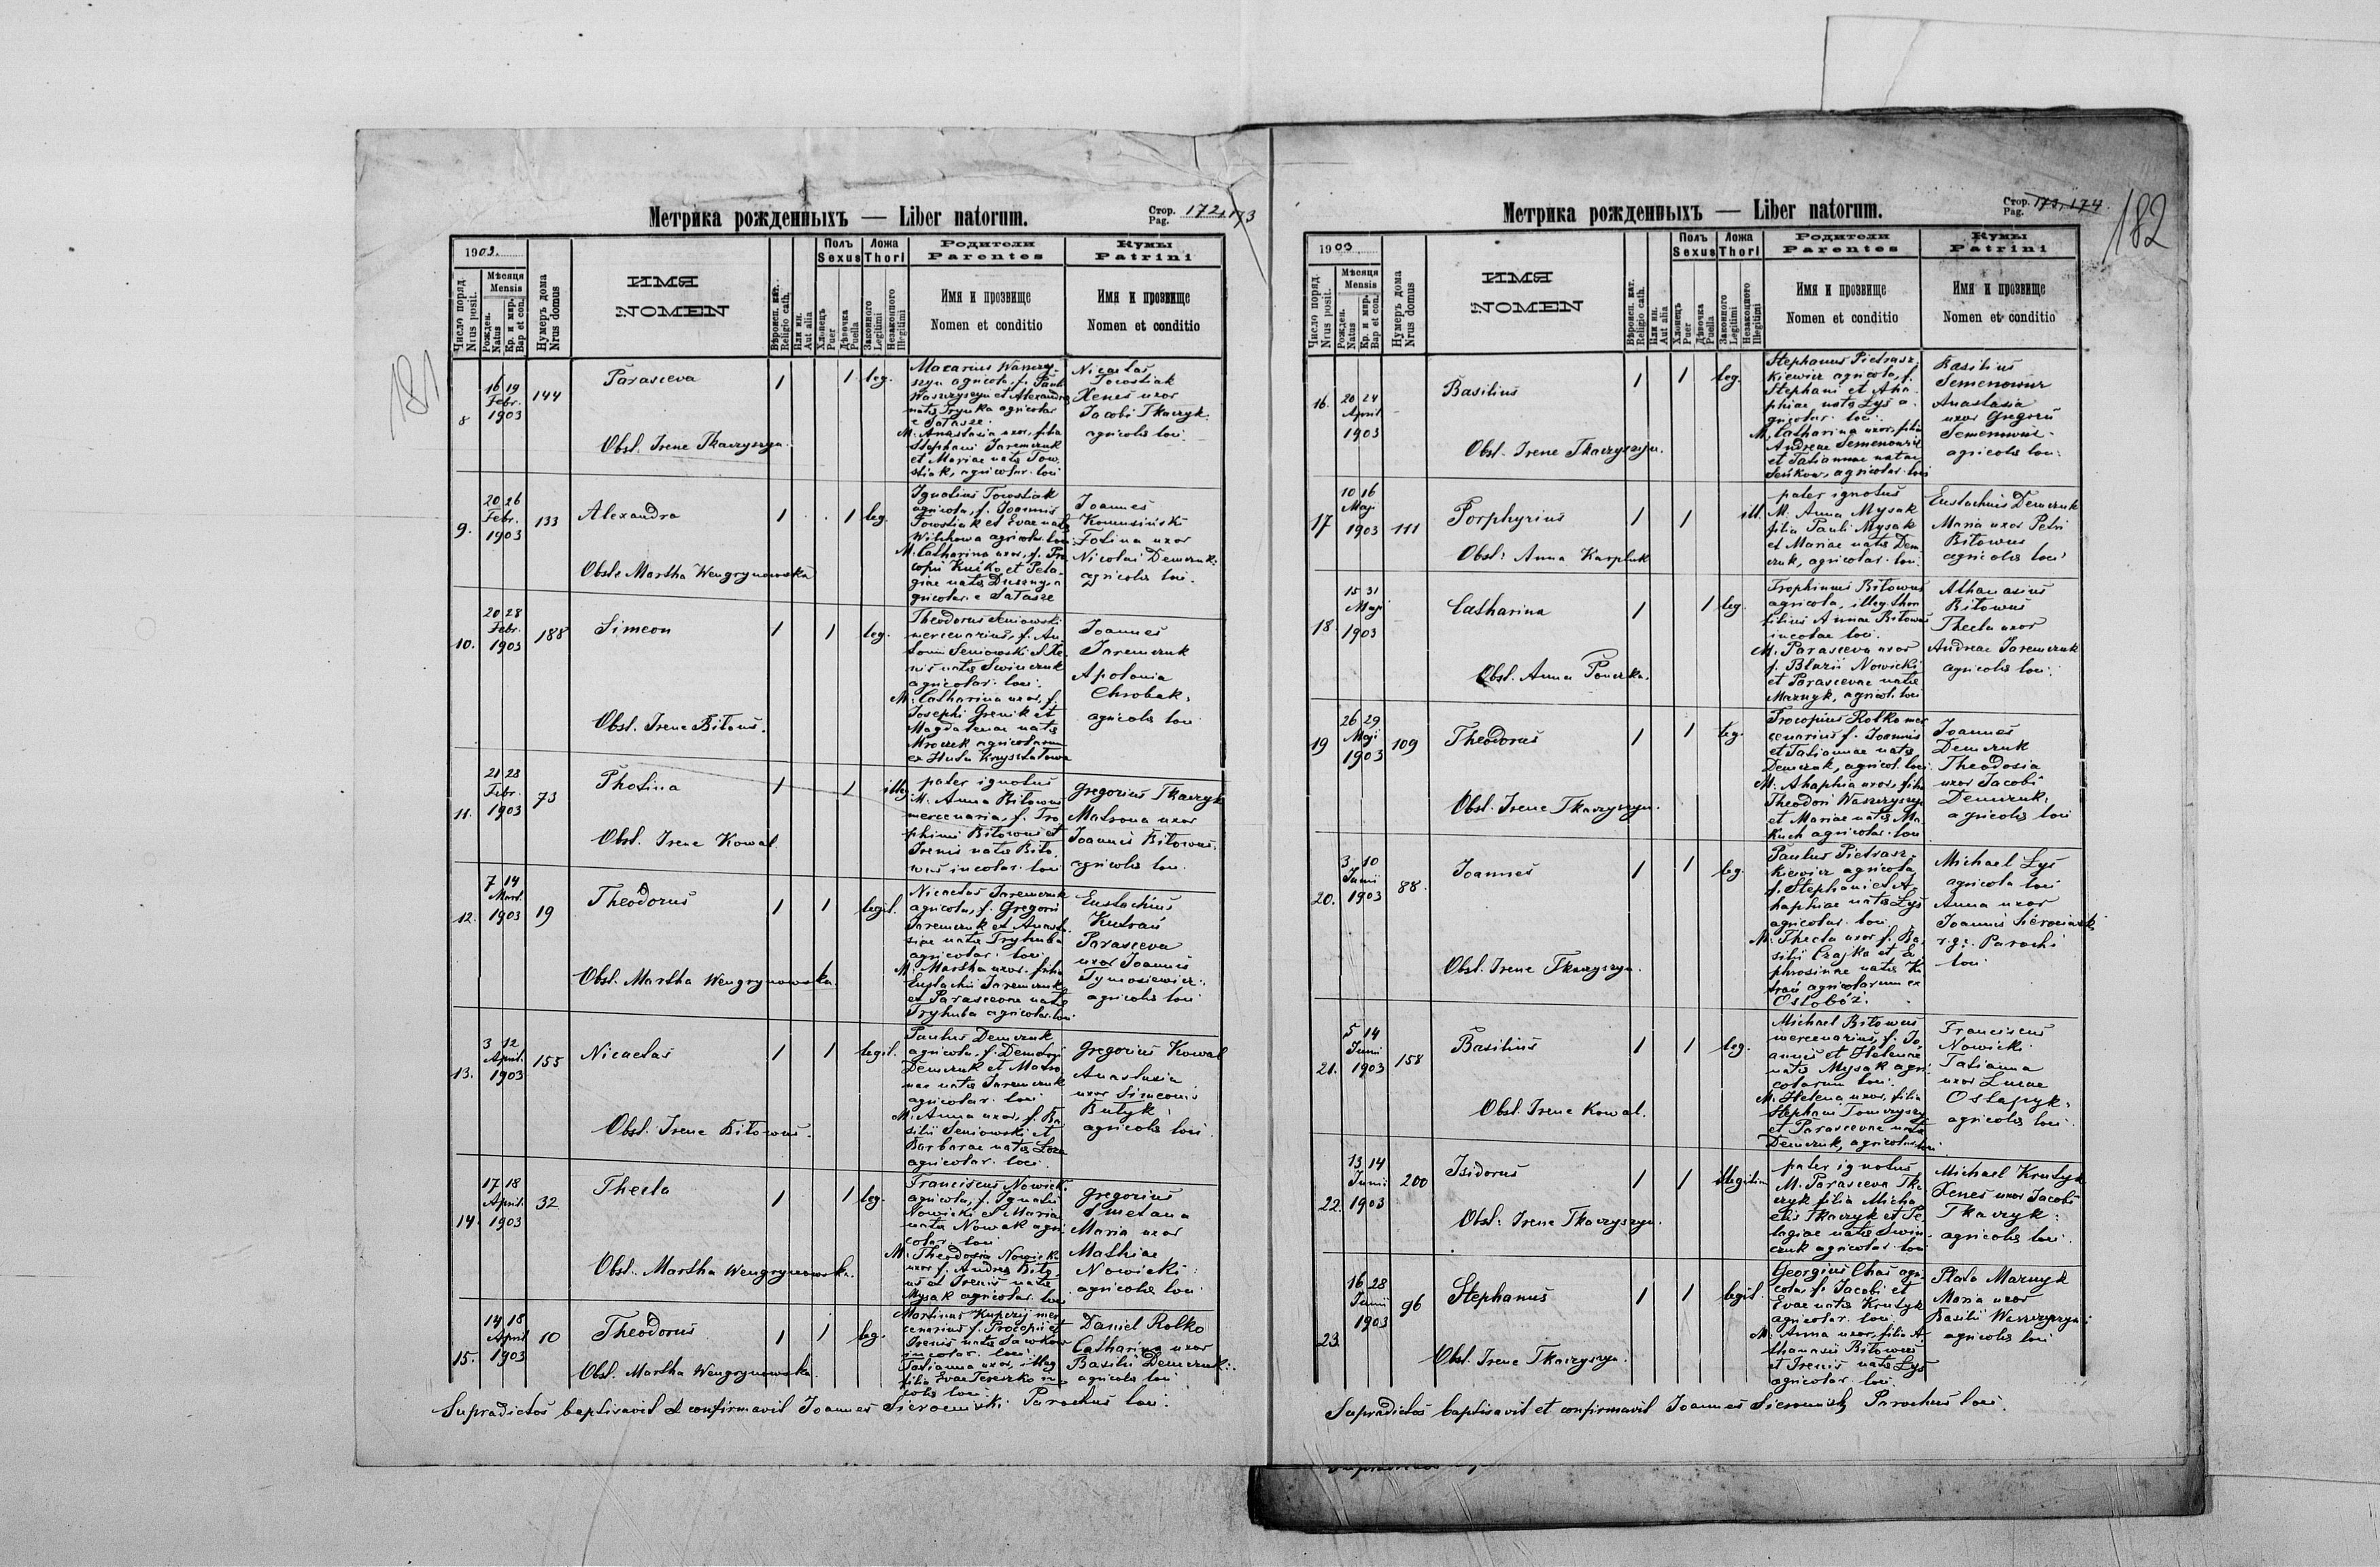 181
Метрика рожденныхъ — Liber natorum.
Стор. Pag. 172, 173
1903.
Число поряд. Nrus posit.
Мѣсяця Mensis
Рожден. Natus
Кр. и мир. Bap et con.
Нумеръ дома Nrus domus
ИМЯ
NOMEN
Вѣроисп. кат. Religio cath.
Или ин. Aut alia
Полъ Sexus
Хлопецъ Puer
Дѣвочка Puella
Ложа Thori
Законного Legitimi
Незаконного Illegitimi
Родители Parentes
Имя и прозвище
Nomen et conditio
Кумы Patrini
Имя и прозвище
Nomen et conditio
8
16 19
Febr.
1903
144
Parasceva
Obst. Irene Tkaczyszyn.
1
1
leg.
Macarius Waszczy-
szyn agricola, f. Pauli
Waszczyszyn et Alexandra
nata Hrynka agricolar
e Sałasze.
M. Anastasia uxor, filia
Stephani Jaremczuk
et Mariae nata Tow-
stiak, agricolar. loci
Nicaetas
Towstiak
Xenes uxor
Jacobi Tkaczyk.
agricolis loci.
9.
20 26
Febr.
1903
133
Alexandra
Obst: Martha Wengrynowska
1
1
leg.
Ignatius Towstiak
agricola, f. Joannis
Towstiak et Evae nata
Witchowa agricolar. loci
M. Catharina uxor, f. Pro
copii Kuśko et Pela-
giae nata Duszny, a
gricolar. e Sałasze
Joannes
Fotina uxor
Nicolai Demczuk.
agricolis loci.
10.
20 28
Febr.
1903
188
Simeon
Obst. Irene Biłous.
1
1
leg.
Theodorus Seniowski
mercenarius, f. An
tonii Seniowski et Xe
nis nata Swinczuk
agricolar. loci.
M. Catharina uxor, f.
Josephi Grenik et
Magdalenae nata
Mroczek agricolarum
ex Huta Kryształowa
Joannes
Jaremczuk
Apolonia
Chrobak,
agricolis loci
11.
21 28
Febr.
1903
73
Photina
Obst. Irene Kowal.
1
1
illeg.
pater ignotus
M. Anna Biłowus
mercenaria, f. Tro
phimi Biłowus et
Irenis nata Biło
wus incolar. loci
Gregorius Tkaczyk
Matrona uxor
Joannis Biłowus.
agricolis loci.
12.
7 14
Mart.
1903
19
Theodorus
Obst. Martha Wengrynowska.
1
1
legit.
Nicaetas Jaremczuk
agricola, f. Gregorii
Jaremczuk et Anasta
siae nata Tryhuba
agricolar. loci
M. Martha uxor, filia
Eustachii Jaremczuk
et Parascevae nata
Tryhuba agricolar. loci
Eustachius
Kutrań
Parasceva
uxor Joannis
Tymosiewicz.
agricolis loci
13.
3 12
April.
1903
155
Nicaetas
Obst. Irene Biłowus.
1
1
legit.
Paulus Demczuk
agricola, f. Demetrii
Demczuk et Matro
nae nata Jaremczuk
agricolar. loci
M. Anna uxor, f. Ba
silii Seniowski et
Barbarae nata Loza
agricolar. loci.
Gregorius Kowal
Anastasia
uxor Simeonis
Butyk.
agricolis loci.
14.
17 18
April.
1903
32
Thecla
Obst. Martha Wengrynowska.
1
1
leg.
Franciscus Nowicki
agricola, f. Ignatii
Nowicki et Mariae
nata Nowak agri
colar. loci
M. Theodosia Nowicka
uxor f. Andrea Biło
us et Irenis nata
Mysak agricolar. loci
Gregorius
Smetana
Maria uxor
Mathiae
Nowicki.
agricolis loci
15.
14 18
April
1903
10
Theodorus
Obst. Martha Wengrynowska.
1
1
leg.
Martinus Kupczyj mer
cenarius f. Procopii et
Irenis nata Sawkow
incolar. loci.
Tatianna uxor, illeg.
filia Evae Tereszko in
colis loci.
Daniel Rolko
Catharina uxor
Basilii Demczuk.
agricolis loci
Supradictos baptisavit et confirmavit Joannes Sierociński Parochus loci.
182
Метрика рожденныхъ — Liber natorum.
Стор. Pag. 173, 174
1903
Число поряд. Nrus posit.
Мѣсяця Mensis
Рожден. Natus
Кр. и мир. Bap et con.
Нумеръ дома Nrus domus
ИМЯ
NOMEN
Вѣроисп. кат. Religio cath.
Или ин. Aut alia
Полъ Sexus
Хлопецъ Puer
Дѣвочка Puella
Ложа Thori
Законного Legitimi
Незаконного Illegitimi
Родители Parentes
Имя и прозвище
Nomen et conditio
Кумы Patrini
Имя и прозвище
Nomen et conditio
16.
20 24
April
1903
Basilius
Obst. Irene Tkaczyszyn.
1
1
leg.
Stephanus Pietrasz-
kiewicz agricola, f.
Stephani et Aha
phiae nata Lys a-
gricolar. loci.
M. Catharina uxor, filia
Andreae Semenowicz
et Tatiannae natae
Seńkow, agricolar. loci
Basilius
Semenowicz
Anastasia
uxor Gregorii
Semenowicz.
agricolis loci.
17
10 16
Maji
1903
111
Porphyrius
Obst: Anna Karpluk
1
1
ill.
pater ignotus
M. Anna Mysak
filia Pauli Mysak
et Mariae nata Dem
czuk, agricolar. loci.
Eustachius Demczuk
Maria uxor Petri
Biłowus
agricolis loci
18
15 31
Maji
1903
Catharina
Obst. Anna Ponczka.
1
1
leg.
Trophimus Biłowus
agricola, illeg. thori
filius Annae Biłowus
incolae loci.
M. Parasceva uxor
f. Blazii Nowicki
et Parascevae nata
Maznyk, agricol. loci
Athanasius
Biłowus
Thecla uxor
Andreae Jaremczuk
agricolis loci.
19
26 29
Maji
1903
109
Theodorus
Obst. Irene Tkaczyszyn.
1
1
leg.
Procopius Rolko mer
cenarius f. Joannis
et Tatiannae nata
Demczuk, agricol. loci
M. Ahaphia uxor, filia
Theodori Waszczyszyn
et Mariae nata Ma
kuch agricolar. loci
Joannes
Demczuk
Theodosia
uxor Jacobi
Demczuk.
agricolis loci
20.
3 10
Junii
1903
88.
Joannes
Obst. Irene Tkaczyszyn.
1
1
leg.
Paulus Pietrasz-
kiewicz agricola
f. Stephani et A-
haphiae nata Lys
agricolar. loci.
M. Thecla uxor f. Ba
silii Czajka et Eu
phrosinae nata Ku
trań agricolarum ex
Ostobóż.
Michael Lys
agricola loci
Anna uxor
Joannis Sierociński
r. g. c. Parochi
loci
21.
5 14
Junii
1903
158
Basilius
Obst. Irene Kowal.
1
1
leg.
Michael Biłowus
mercenarius, f. Jo
annis et Helenae
nata Mysak agri
colarum loci.
M. Helena uxor, filia
Stephani Tomczyszyn
et Parascevae nata
Demczuk, agricolar. loci
Franciscus
Nowicki
Tatianna
uxor Lucae
Ostapyk.
agricolis loci.
22.
13 14
Junii
1903
200
Isidorus
Obst: Irene Tkaczyszyn.
1
1
illegitim
pater ignotus
M. Parasceva Tka
czyk filia Micha
elis Tkaczyk et Pe
lagiae nata Swin
czuk agricolar. loci
Michael Krutyk
Xenes uxor Jacobi
Tkaczyk.
agricolis loci.
23.
16 28
Junii
1903
96
Stephanus
Obst. Irene Tkaczyszyn.
1
1
legit.
Georgius Chaś agri
cola, f. Jacobi et
Evae nata Krutyk
agricolar. loci.
M. Anna uxor, filia A
thanasii Biłowus
et Irenis nata Lys
agricolar. loci.
Plato Maznyk
Maria uxor
Basilii Waszczyszyn.
agricolis loci
Supradictos baptisavit et confirmavit Joannes Sierociński Parochus loci.